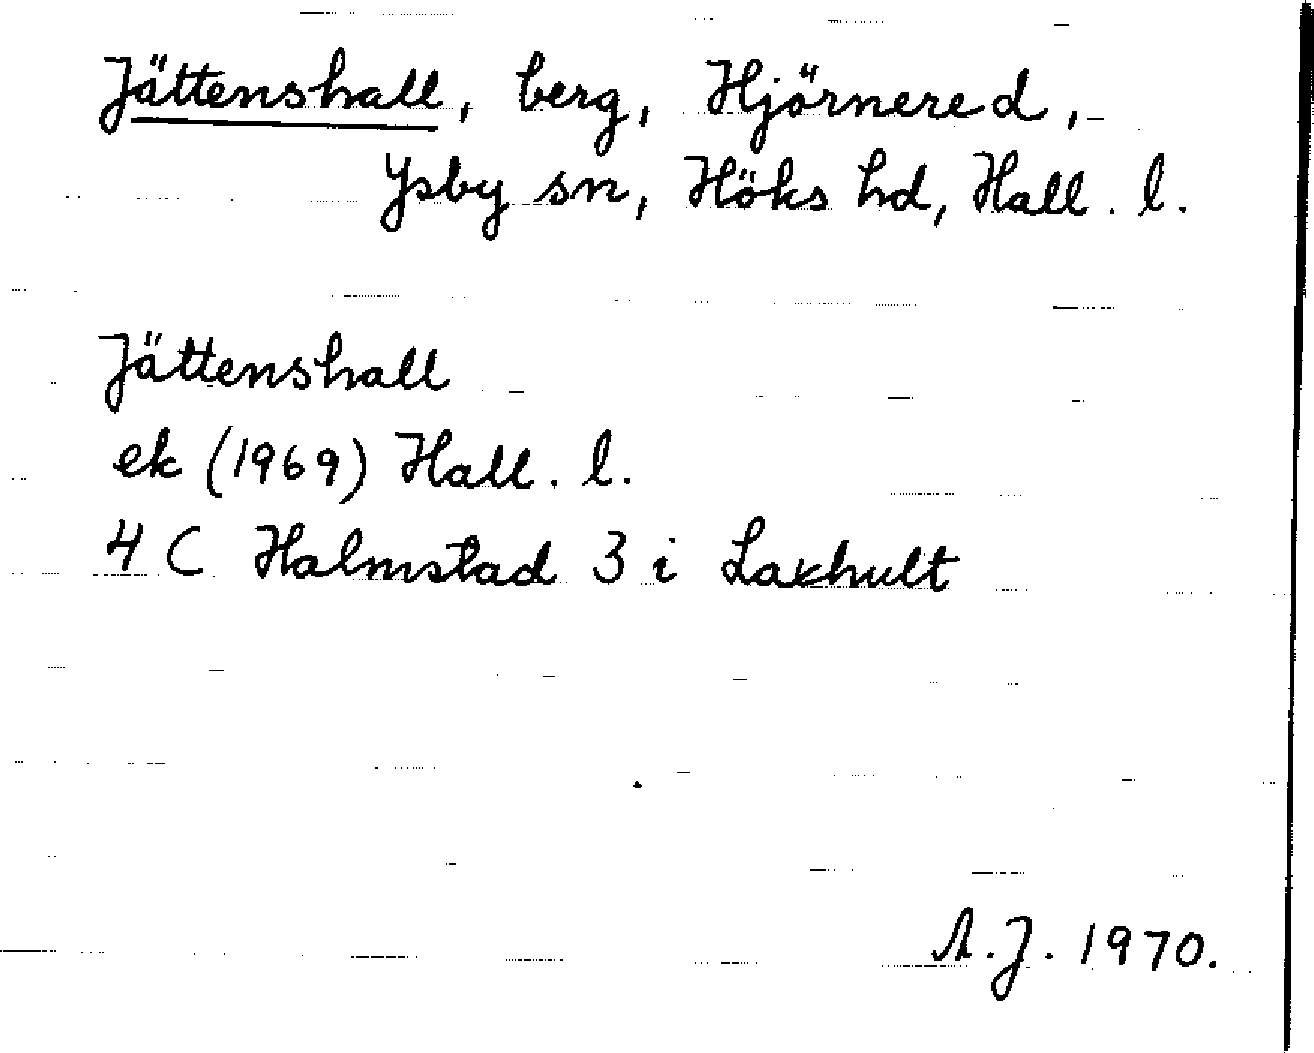 Jättenshall, berg, Hjörnered,
Ysby sn, Höks hd, Hall. l.
Jättenshall
ek (1969) Hall. l.
4 C Halmstad 3 i Laxhult
A.J. 1970.